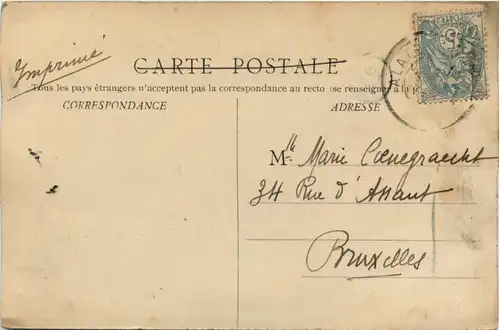 Imprimé
CARTE POSTALE
Tous les pays étrangers n'acceptent pas la correspondance au recto (se renseigner à la
CORRESPONDANCE
ADRESSE
Mlle Marie Coenegracht
34 Rue d'Assaut
Bruxelles